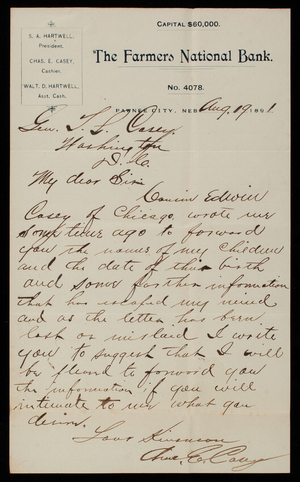 CAPITAL $60,000.
S. A. HARTWELL,
President.
CHAS. E. CASEY,
Cashier.
WALT. D. HARTWELL,
Asst. Cash.
The Farmers National Bank.
No. 4078.
PAWNEE CITY, NEB Aug. 19 1891
Gen. T. L. Casey.
Washington
D. C.
My dear Sir:
Cousin Edwin
Casey of Chicago wrote me
some time ago to forward
you the names of my Children
and the date of their birth
and some further information
that has escaped my mind
and as the letter has been
lost or mislaid I write
you to suggest that I will
be pleased to forward you
the information if you will
intimate to me what you
desire.
Your Kinsman
Chas. E. Casey